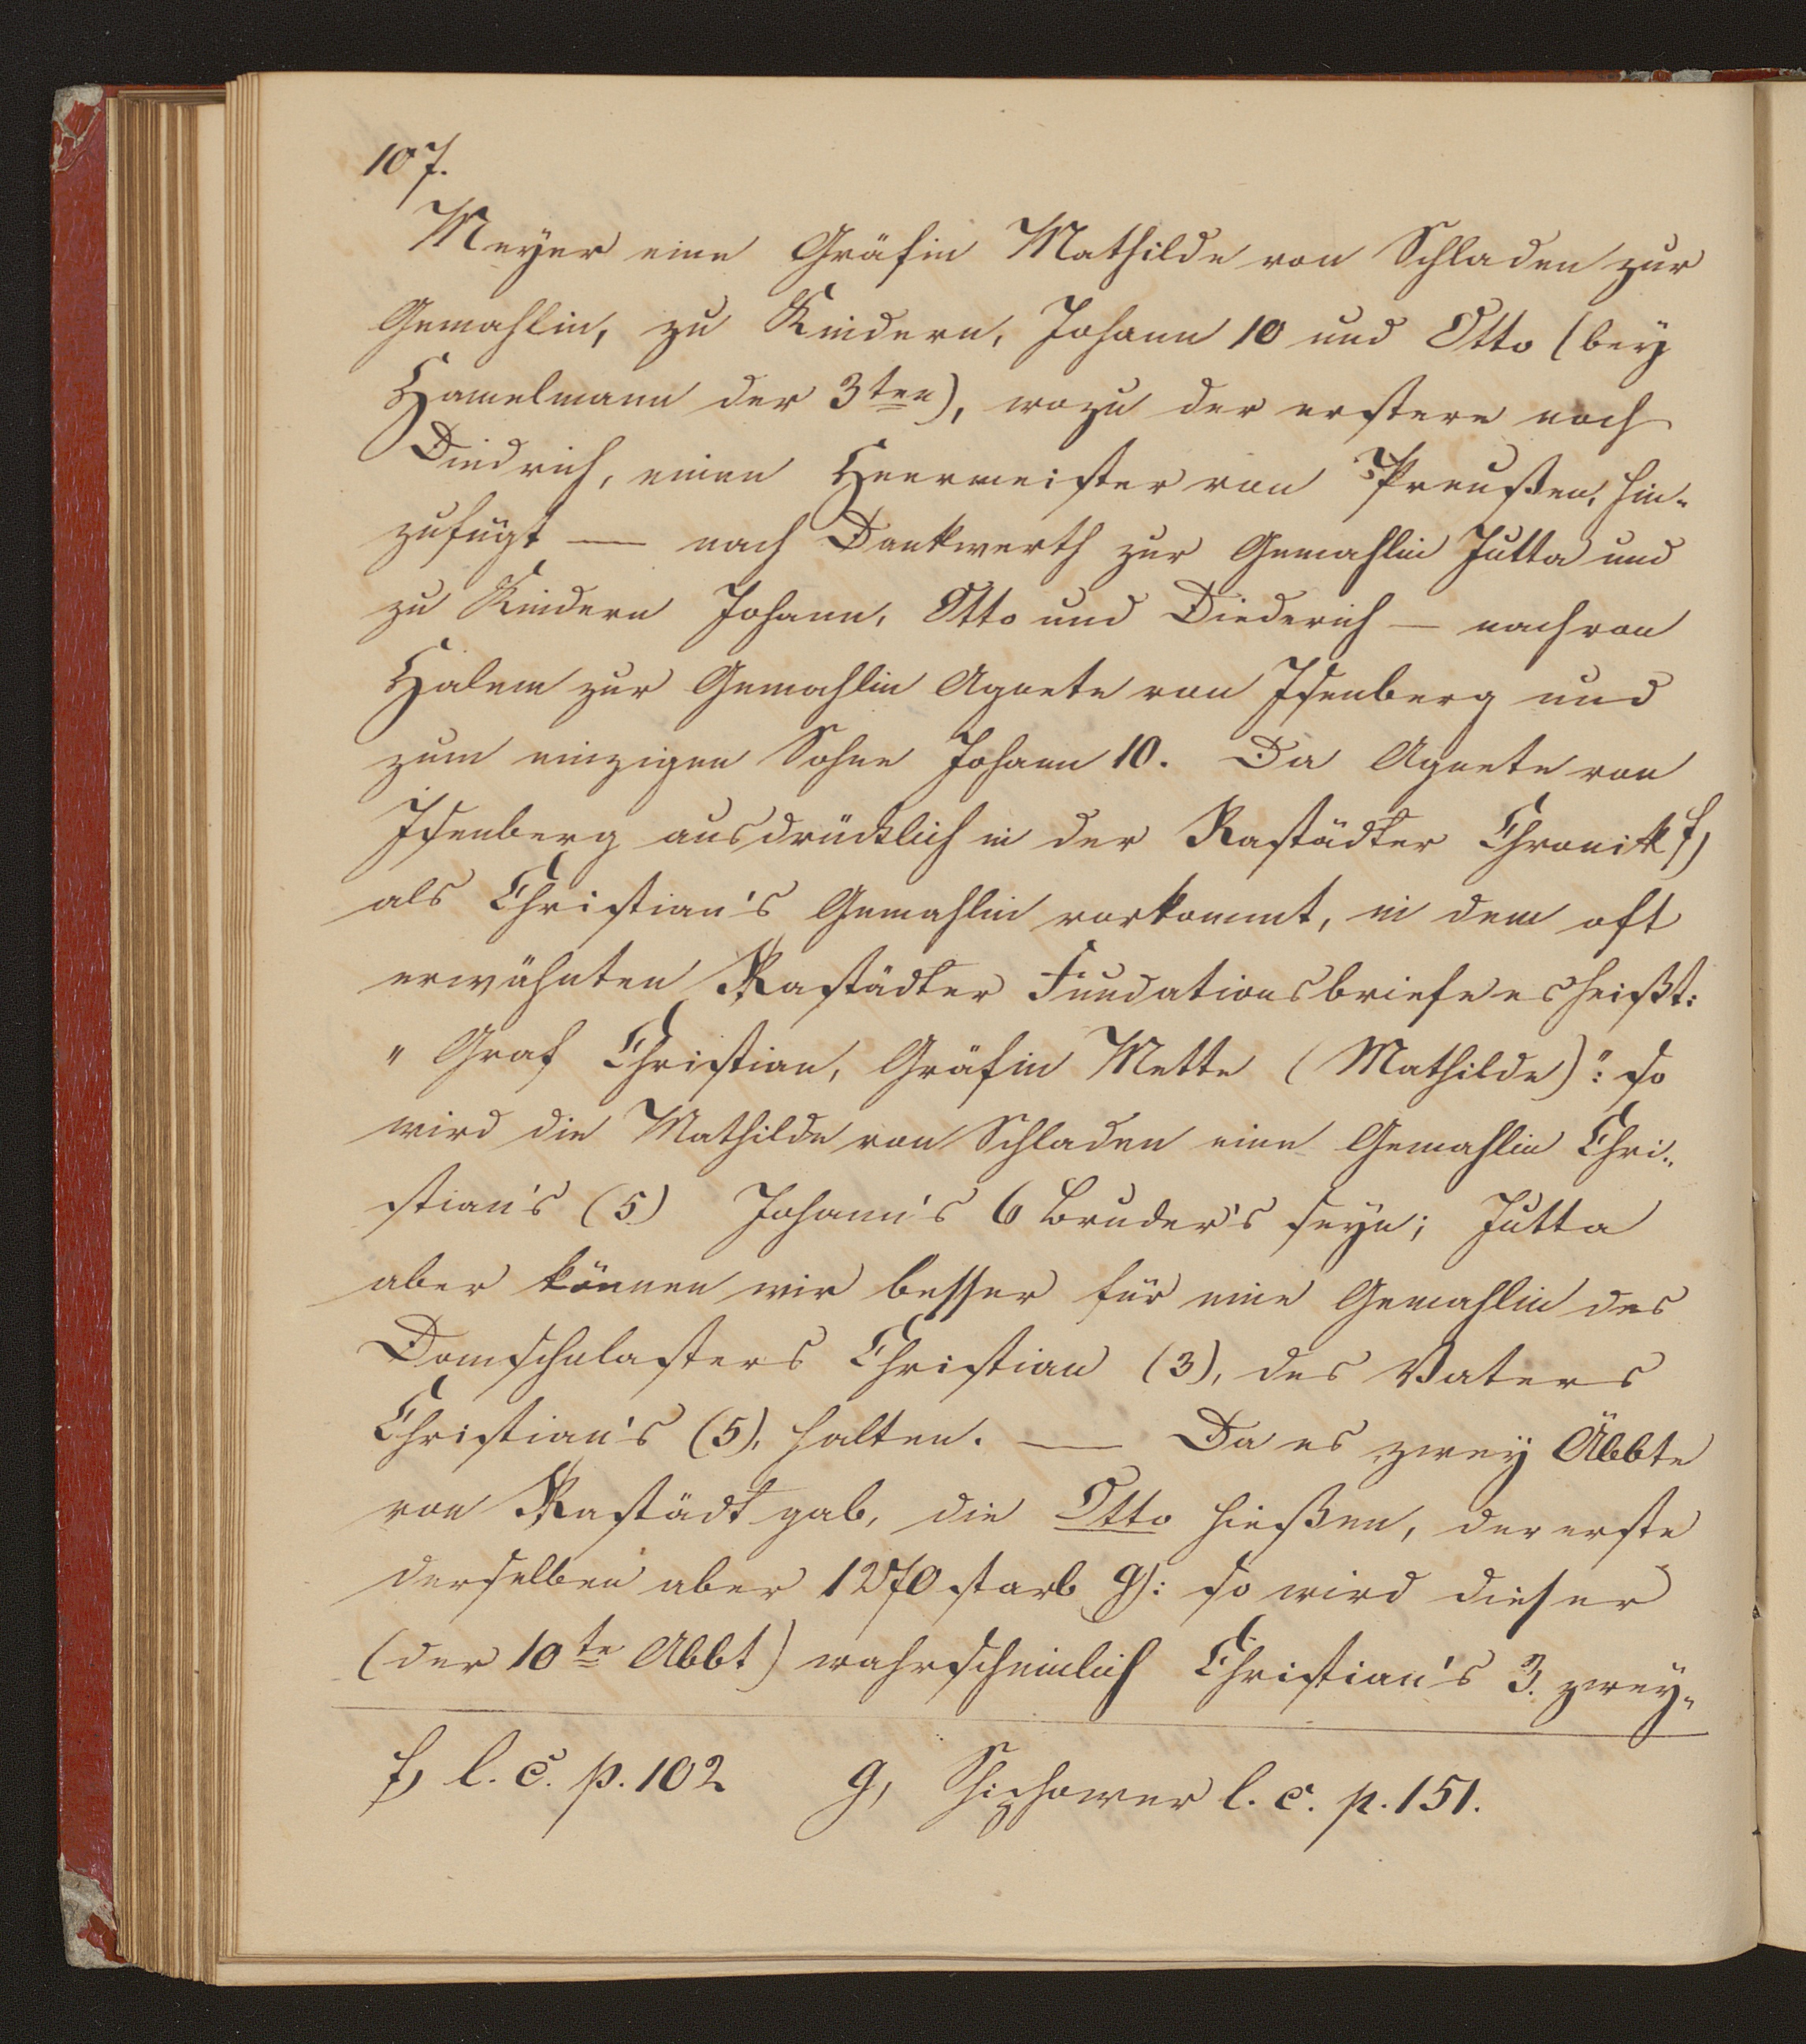 107.
Meyer eine Gräfin Mathilde von Schladen zur
Gemahlin, zu Kindern, Johann 10 und Otto (bey
Hamelmann der 3ten), wozu der erstere noch
Diedrich, einen Heermeister von Preußen, hin-
zufügt — nach Dankwerth zur Gemahlin Jutta und
zu Kindern Johann, Otto und Diederich — nach von
Halem zur Gemahlin Agnete von Isenberg und
zum einzigen Sohne Johann 10. Da Agnete von
Isenberg ausdrücklich in der Rastädter Chronik f)
als Christian's Gemahlin vorkommt, in dem oft
erwähnten Rastädter Fundationsbriefe es heißt:
"Graf Christian, Gräfin Mette (Mathilde)": so
wird die Mathilde von Schladen eine Gemahlin Chri-
stian's (5) Johann's 6 Bruder's seyn; Jutta
aber können wir besser für eine Gemahlin des
Domscholasters Christian (3), des Vaters
Christian's (5), halten. — Da es zwey Äbbte
von Rastädt gab, die Otto hießen, der erste
derselben aber 1270 starb g): so wird dieser
(der 10te Abbt) wahrscheinlich Christian's 3. zwey-
f) l. c. p. 102 g) Schiphower l. c. p. 151.